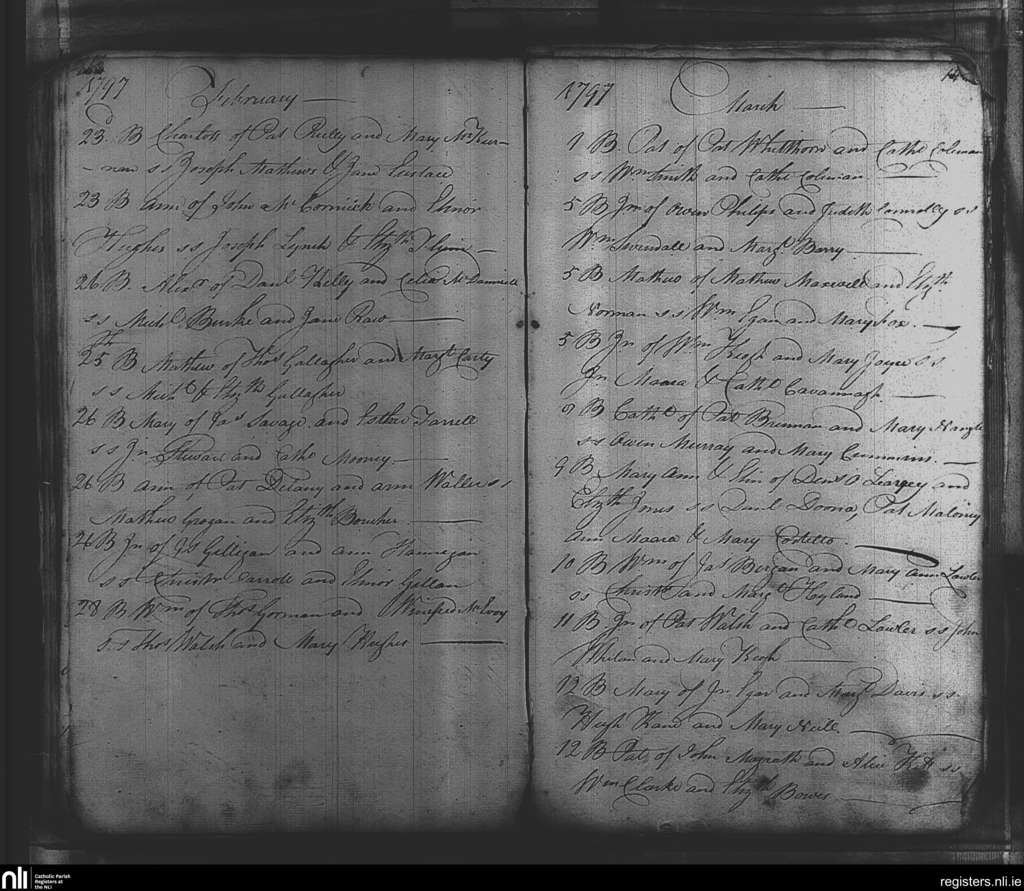 1797 February
23d B Charlott of Pat Reilly and Mary McKier-
-nan ss Joseph Mathews & Jane Eustace
23 B Ann of John McCormick and Elinor
Hughes ss Joseph Lynch & Elizth Flynn
26 B Alexr of Danl Kelly and Celia McDanniell
ss Michl Burke and Jane Raw
25th B Mathew of Thos Gallagher and Margt Carty
ss Michl & Elizth Gallagher
26 B Mary of Jas Savage and Esther Farrell
ss Jn Stewart and Cathe Mooney
26 B Ann of Pat Delany and Ann Waller ss
Mathew Grogan and Elizth Boucher
26 B Jn of Js Gilligan and Ann Hannegan
ss Christr Carroll and Elinor Gillan
28 B Wm of Thos Gorman and Winifred McEvoy
ss Thos Walsh and Mary Hughes
1797 March
1 B Pat of Pat Whitthorn and Cathe Coleman
ss Wm Smith and Cathe Coleman
5 B Jn of Owen Philips and Judith Connolly ss
Wm and Margt Barry
5 B Mathew of Mathew Maxwell and Elizth
Norman ss Wm Egan and Mary Fox
5 B Jn of Wm Keogh and Mary Joyce ss
Jn Maara & Cathe Cavannagh
8 B Cathe of Pat Brennan and Mary Nangle
ss Owen Murray and Mary Cummins
9 B Mary Ann & Elin of Denis O Learey and
Elizth Jones ss Danl Doona, Pat Maloney
Ann Maara & Mary Costello
10 B Wm of Jas Bergan and Mary Ann Lawler
ss Christr and Margt Hoyland
11 B Jn of Pat Walsh and Cathe Lawler ss John
Whelan and Mary Keogh
12 B Mary of Jn Egan and Margt Davis ss
Hugh Kane and Mary Neill
12 B Pat of John Magrath and Alice ss
Wm Clarke and Elizth Bower
nli Catholic Parish
Registers at
the NLI
registers.nli.ie